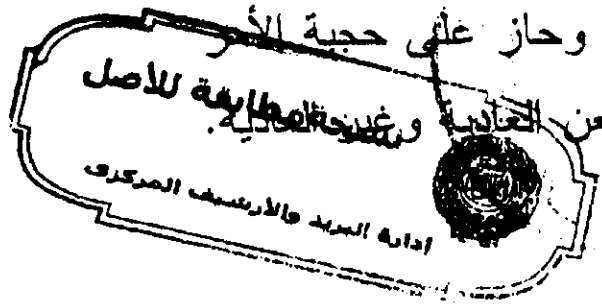 وحاز على حجية الأمر
نسخة مطابقة للأصل
عن العادية وغير العادية.
إدارة البريد والأرشيف المركزى